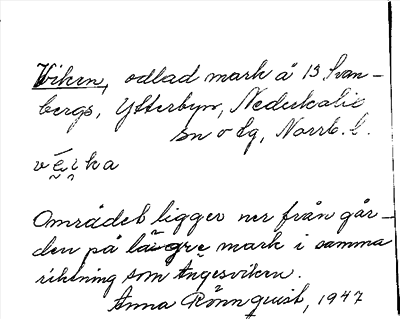 Viken, odlad mark å 13 Svan-
bergs, Ytterbyn, Nederkalix
sn o tg, Norrb. l.
vei̯ka
Området ligger ner från går-
den på lägre mark i samma
riktning som Ängesviken.
Anna Rönnquist, 1947